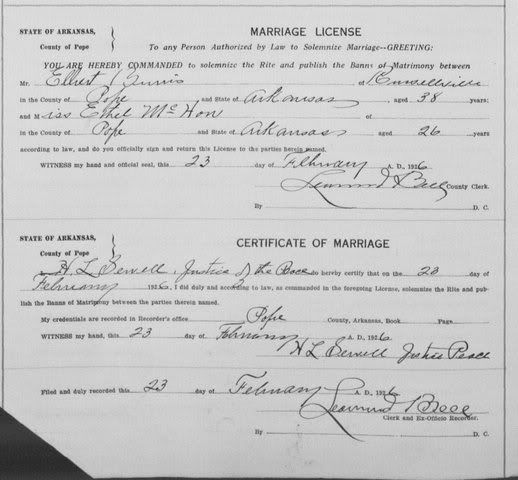 STATE OF ARKANSAS, MARRIAGE LICENSE
County of Pope To any Person Authorized by Law to Solemnize Marriage--GREETING:
YOU ARE HEREBY COMMANDED to solemnize the Rite and publish the Banns of Matrimony between
Mr. Elbert of Russellville
in the County of Pope and State of Arkansas, aged 38 years:
and Miss Ethel McHon of
in the County of Pope and State of Arkansas aged 26 years
according to law, and do you officially sign and return this License to the parties herein named.
WITNESS my hand and official seal, this 23 day of February A. D., 1926
County Clerk.
By D. C.
STATE OF ARKANSAS, CERTIFICATE OF MARRIAGE
County of Pope
H. L. Justice of the Peace do hereby certify that on the 23 day of
February 1926, I did duly and according to law, as commanded in the foregoing License, solemnize the Rite and pub-
lish the Banns of Matrimony between the parties therein named.
My credentials are recorded in Recorder's office Pope County, Arkansas, Book Page
WITNESS my hand, this 23 day of February A. D., 1926
H L Justice Peace
Filed and duly recorded this 23 day of February A. D., 1926
Clerk and Ex-Officio Recorder.
By D. C.